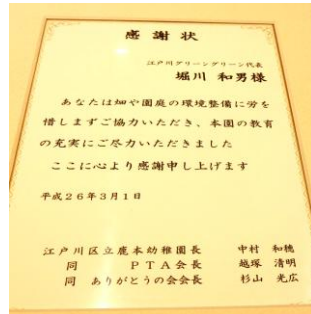 感謝状
江戸川グリーングリーン代表
堀川 和男様
あなたは畑や園庭の環境整備に労を
惜しまずご協力いただき、本園の教育
の充実にご尽力いただきました
ここに心より感謝申し上げます
平成26年3月1日
江戸川区立鹿本幼稚園長 中村 和穂
同 PTA会長 越塚 清明
同 ありがとうの会会長 杉山 光広